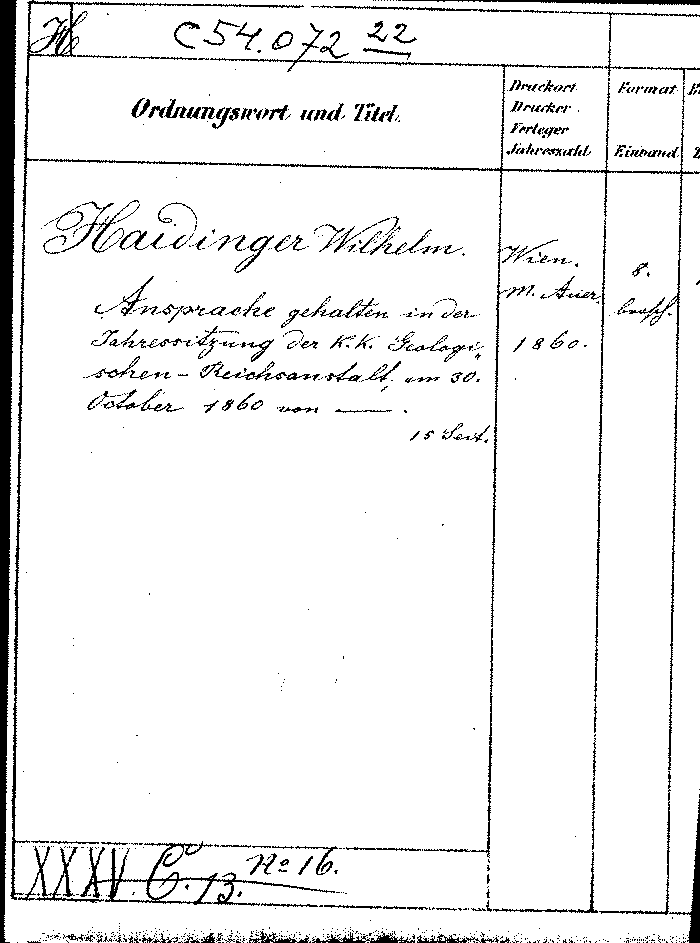 H C 54.072 22
Ordnungswort und Titel.
Druckort
Drucker
Verleger
Jahreszahl
Format
Einband
Haidinger Wilhelm.
Ansprache gehalten in der
Jahressitzung der K. K. Geologi„
schen-Reichsanstalt, am 30.
October 1860 von —— .
15 Seit.
Wien.
M. Auer.
1860.
8.
brosch.
XXXV. C. 13. No 16.